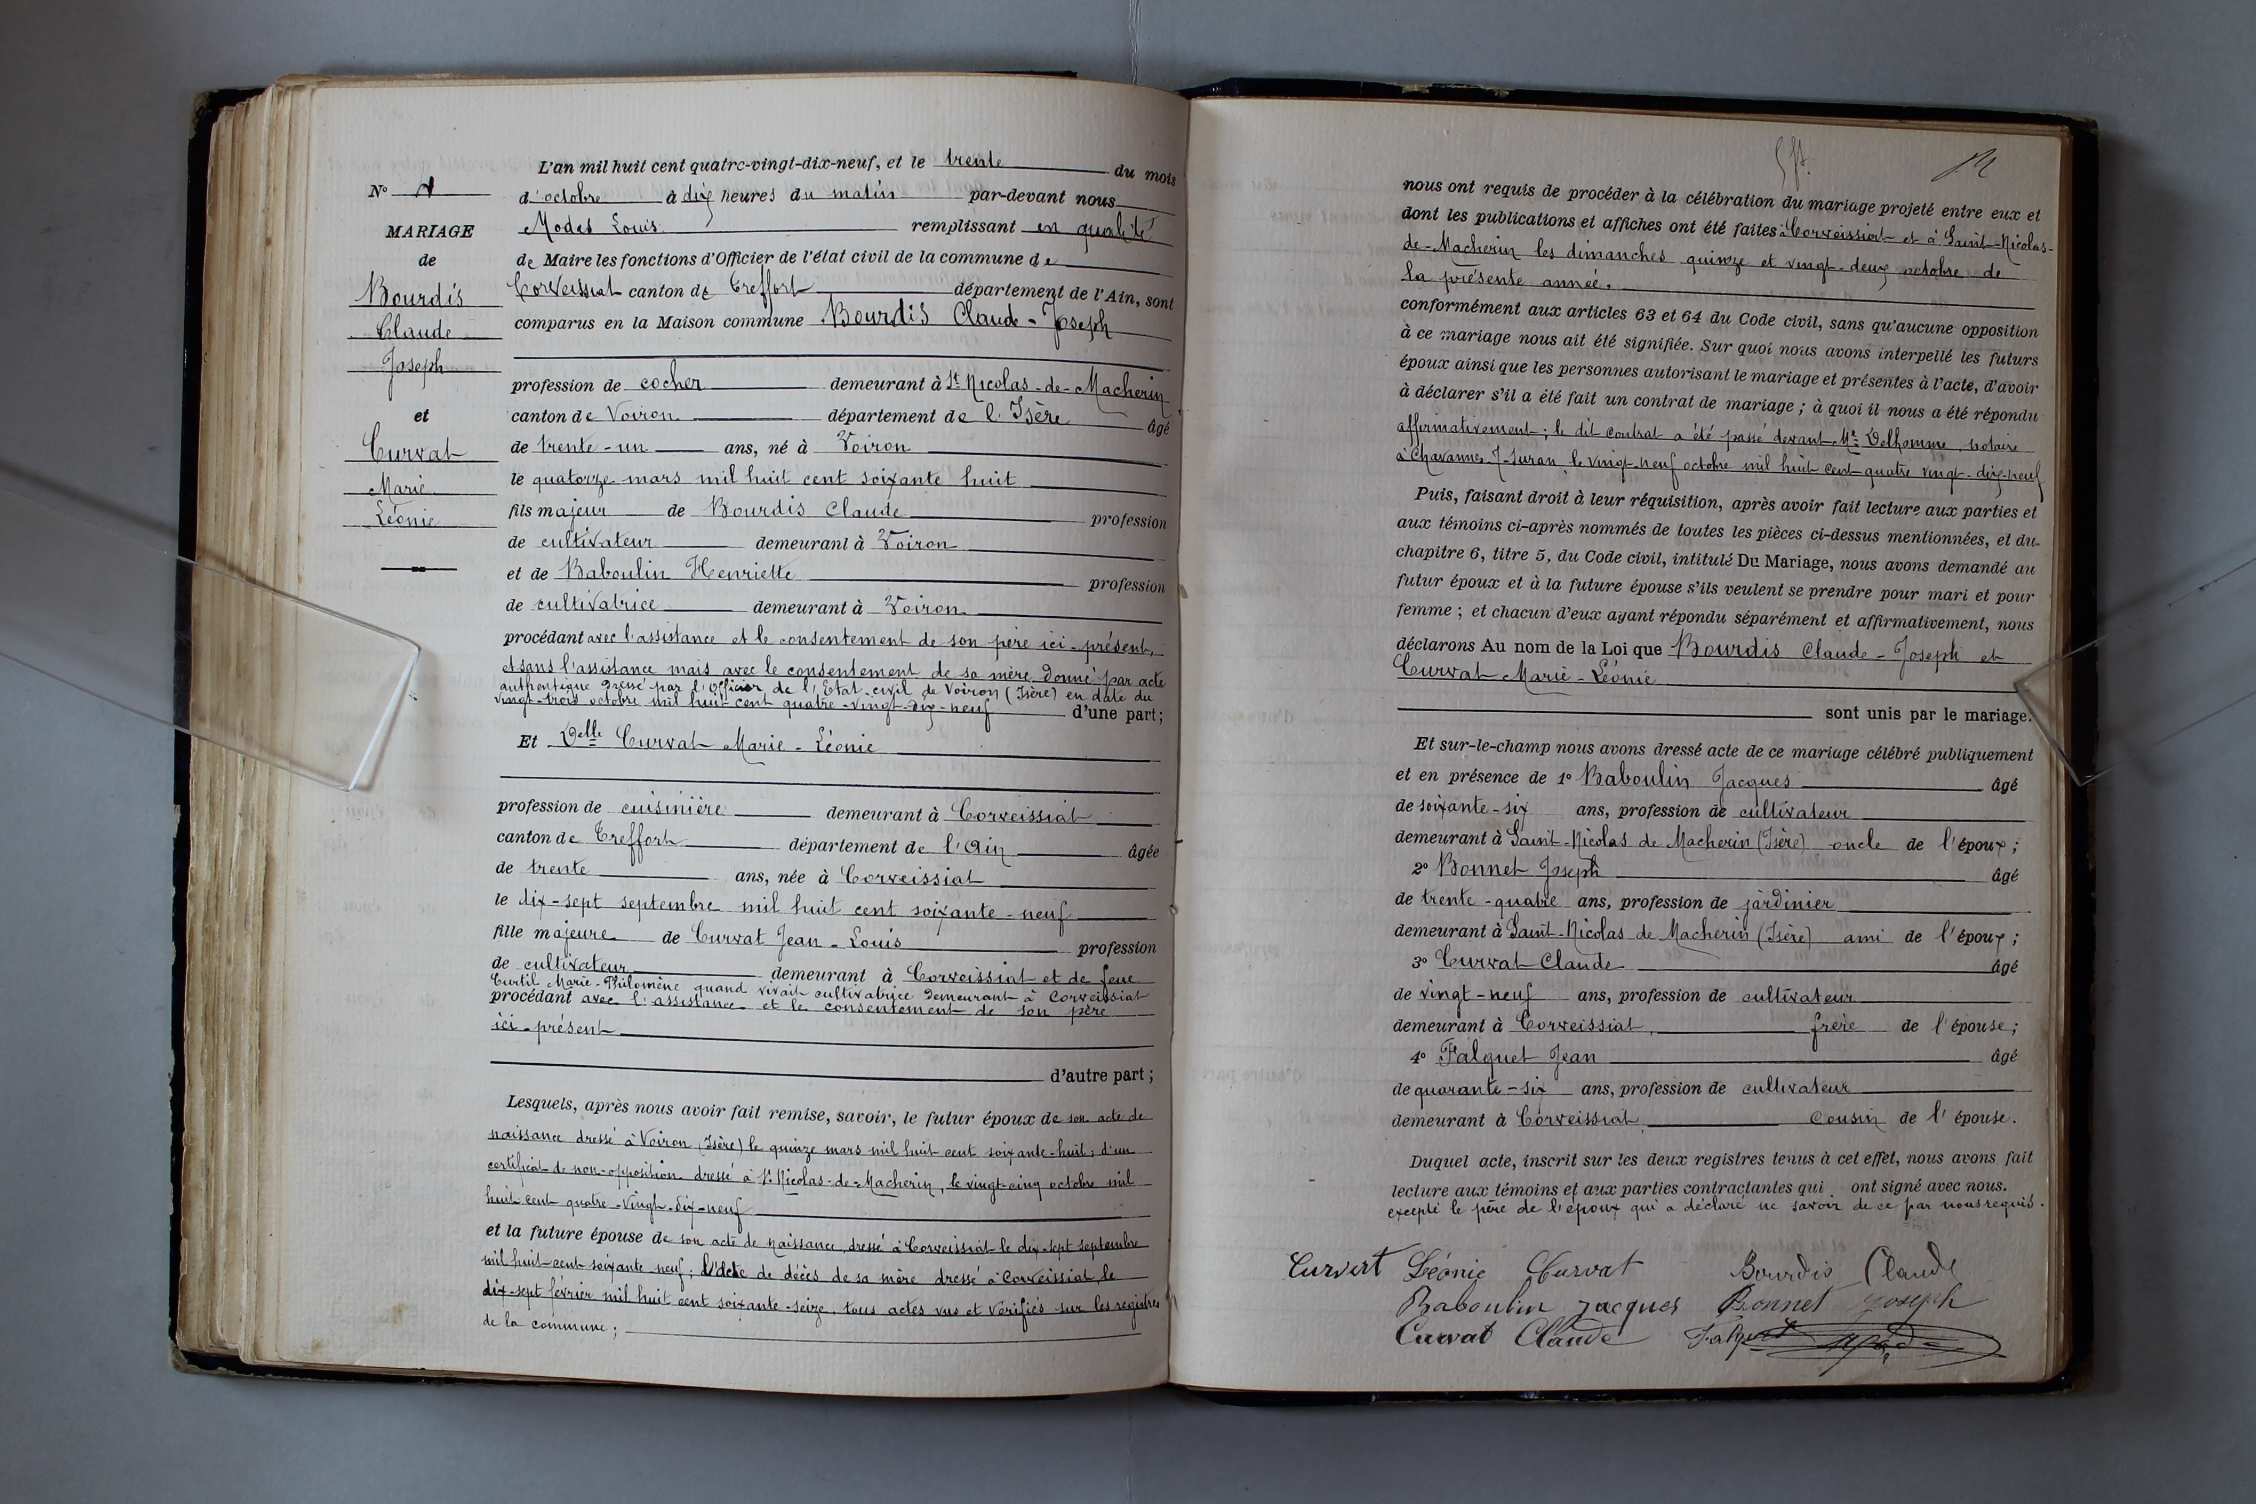 L'an mil huit cent quatre-vingt-dix-neuf, et le trente du mois
d'octobre à dix heures du matin par-devant nous
Modas Louis remplissant en qualité
de Maire les fonctions d'Officier de l'état civil de la commune de
Corveissiat canton de Treffort département de l'Ain, sont
comparus en la Maison commune Bourdis Claude-Joseph
profession de cocher demeurant à St Nicolas-de-Macherin
canton de Voiron département de l'Isère âgé
de trente-un ans, né à Voiron
le quatorze mars mil huit cent soixante huit
fils majeur de Bourdis Claude profession
de cultivateur demeurant à Voiron
et de Baboulin Henriette profession
de cultivatrice demeurant à Voiron
procédant avec l'assistance et le consentement de son père ici-présent,
et sans l'assistance mais avec le consentement de sa mère donné par acte
authentique dressé par l'Officier de l'Etat-civil de Voiron (Isère) en date du
vingt-trois octobre mil huit cent quatre-vingt-dix-neuf d'une part;
Et Delle Curvat Marie-Léonie
profession de cuisinière demeurant à Corveissiat
canton de Treffort département de l'Ain âgée
de trente ans, née à Corveissiat
le dix-sept septembre mil huit cent soixante-neuf
fille majeure de Curvat Jean-Louis profession
de cultivateur demeurant à Corveissiat et de feue
Curtil Marie-Philomène quand vivait cultivatrice demeurant à Corveissiat
procédant avec l'assistance et le consentement de son père
ici-présent
d'autre part;
Lesquels, après nous avoir fait remise, savoir, le futur époux de son acte de
naissance dressé à Voiron (Isère) le quinze mars mil huit cent soixante-huit; d'un
certificat de non-opposition dressé à St Nicolas-de-Macherin, le vingt-cinq octobre mil
huit cent quatre-vingt-dix-neuf
et la future épouse de son acte de naissance, dressé à Corveissiat le dix-sept septembre
mil huit-cent soixante neuf; L'acte de décès de sa mère dressé à Corveissiat, le
dix-sept février mil huit cent soixante-seize, tous actes vus et vérifiés sur les registres
de la commune;
No
MARIAGE
de
Bourdis
Claude
Joseph
et
Curvat
Marie
Léonie
nous ont requis de procéder à la célébration du mariage projeté entre eux et
dont les publications et affiches ont été faites à Corveissiat et à Saint-Nicolas-
de-Macherin les dimanches quinze et vingt-deux octobre de
la présente année.
conformément aux articles 63 et 64 du Code civil, sans qu'aucune opposition
à ce mariage nous ait été signifiée. Sur quoi nous avons interpellé les futurs
époux ainsi que les personnes autorisant le mariage et présentes à l'acte, d'avoir
à déclarer s'il a été fait un contrat de mariage; à quoi il nous a été répondu
affirmativement; le dit contrat a été passé devant Me Delhomme, notaire
à Chavannes-s-Suran, le vingt-neuf octobre mil huit cent-quatre vingt-dix-neuf
Puis, faisant droit à leur réquisition, après avoir fait lecture aux parties et
aux témoins ci-après nommés de toutes les pièces ci-dessus mentionnées, et du
chapitre 6, titre 5, du Code civil, intitulé Du Mariage, nous avons demandé au
futur époux et à la future épouse s'ils veulent se prendre pour mari et pour
femme; et chacun d'eux ayant répondu séparément et affirmativement, nous
déclarons Au nom de la Loi que Bourdis Claude-Joseph et
Curvat Marie-Léonie
sont unis par le mariage.
Et sur-le-champ nous avons dressé acte de ce mariage célébré publiquement
et en présence de 1o Baboulin Jacques âgé
de soixante-six ans, profession de cultivateur
demeurant à Saint-Nicolas de Macherin (Isère) oncle de l'époux;
2o Bonnet Joseph âgé
de trente-quatre ans, profession de jardinier
demeurant à Saint-Nicolas de Macherin (Isère) ami de l'époux;
3o Curvat Claude âgé
de vingt-neuf ans, profession de cultivateur
demeurant à Corveissiat, frère de l'épouse;
4o Falquet Jean âgé
de quarante-six ans, profession de cultivateur
demeurant à Corveissiat, cousin de l'épouse.
Duquel acte, inscrit sur les deux registres tenus à cet effet, nous avons fait
lecture aux témoins et aux parties contractantes qui ont signé avec nous.
excepté le père de l'époux qui a déclaré ne savoir de ce par nous requis.
Curvert Léonie Curvat Bourdis Claude
Baboulin Jacques Bonnet Joseph
Curvat Claude Falquet